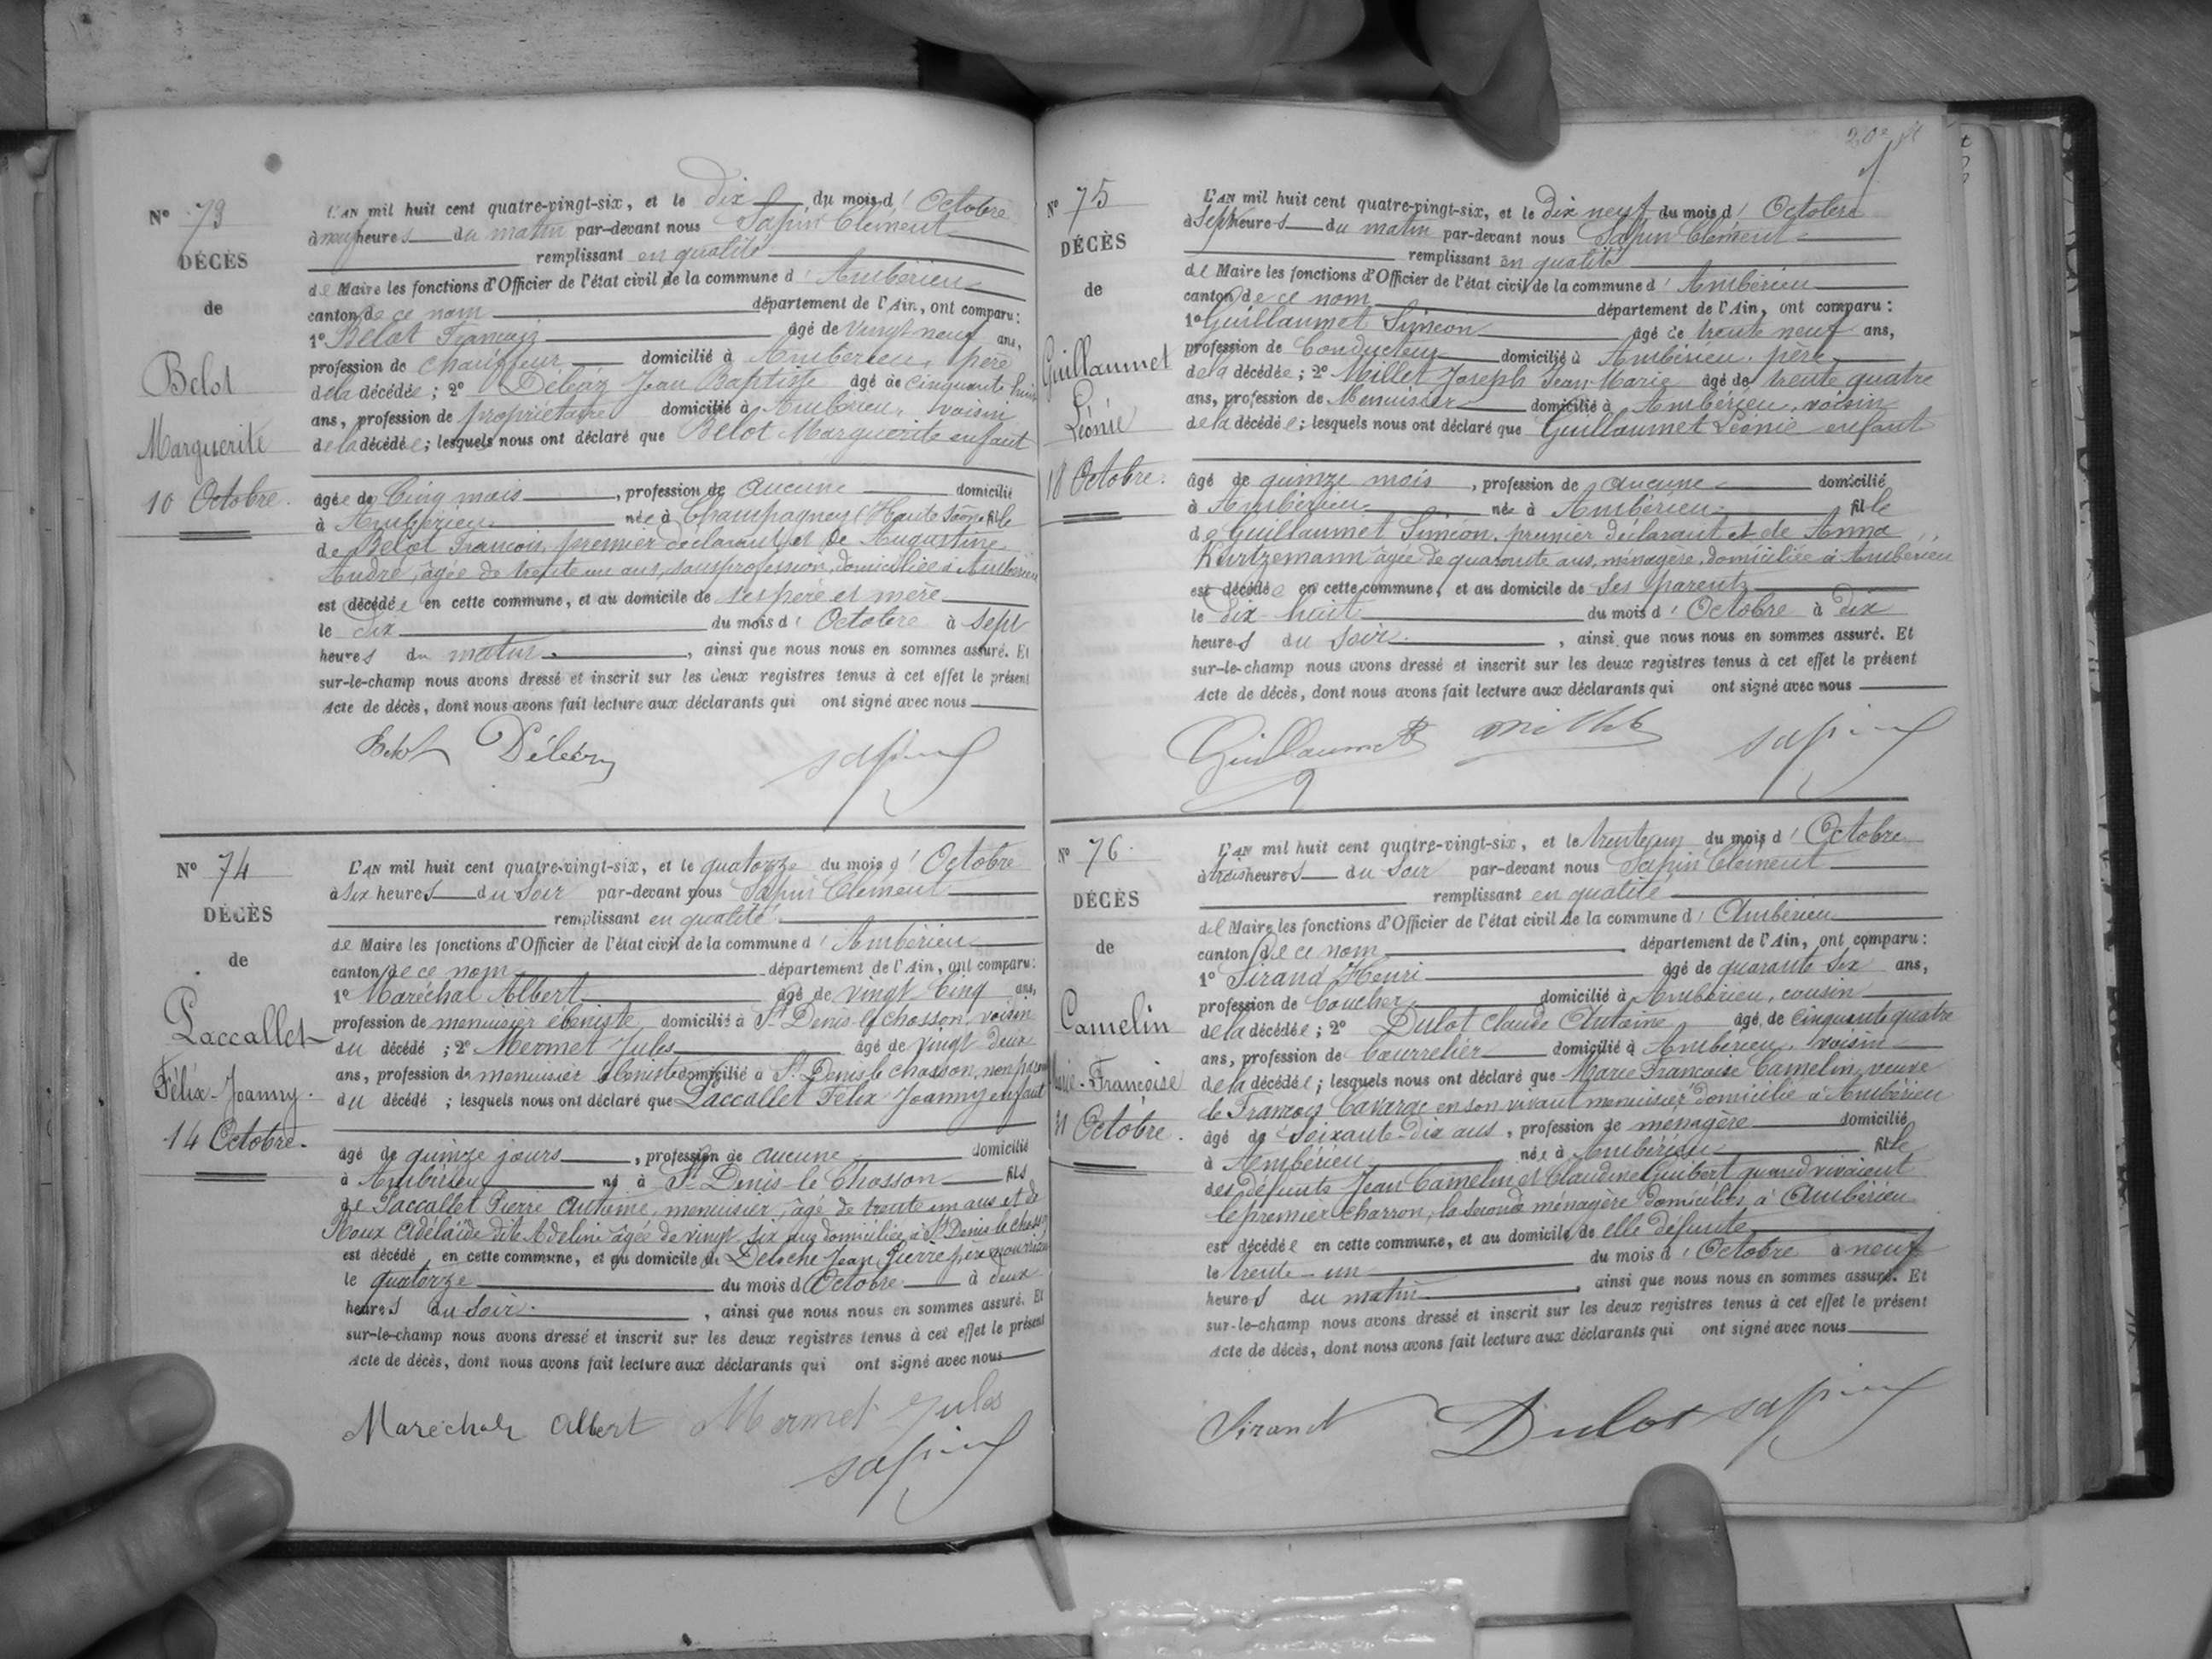 N° 73
DÉCÈS
de
Belot
Marguerite
10 Octobre.
L'AN mil huit cent quatre-vingt-six, et le dix du mois d'Octobre
à neuf heures du matin par-devant nous Sapin Clément
remplissant en qualité
de Maire les fonctions d'Officier de l'état civil de la commune d'Ambérieu
canton de ce nom département de l'Ain, ont comparu:
1° Belot François âgé de vingt neuf ans,
profession de chauffeur domicilié à Ambérieu, père
de la décédée; 2° Déléaz Jean Baptiste âgé de cinquante huit
ans, profession de propriétaire domicilié à Ambérieu, voisin
de la décédée; lesquels nous ont déclaré que Belot Marguerite enfant
âgée de Cinq mois, profession de aucune domicilié
à Ambérieu née à Champagney (Haute Saône) fille
de Belot François, premier déclarant et de Augustine
André, âgée de trente un ans, sans profession, domiciliée à Ambérieu
est décédée en cette commune, et au domicile de ses père et mère
le dix du mois d'Octobre à sept
heures du matin, ainsi que nous nous en sommes assuré. Et
sur-le-champ nous avons dressé et inscrit sur les deux registres tenus à cet effet le présent
Acte de décès, dont nous avons fait lecture aux déclarants qui ont signé avec nous
Belot Déléaz sapin
N° 74
DÉCÈS
de
Paccallet
Félix-Joanny.
14 Octobre.
L'AN mil huit cent quatre-vingt-six, et le quatorze du mois d'Octobre
à six heures du soir par-devant nous Sapin Clément
remplissant en qualité
de Maire les fonctions d'Officier de l'état civil de la commune d'Ambérieu
canton de ce nom département de l'Ain, ont comparu:
1° Maréchal Albert âgé de vingt cinq ans,
profession de menuisier ébéniste domicilié à St Denis-le-chosson, voisin
du décédé; 2° Mermet Jules âgé de vingt deux
ans, profession de menuisier ébéniste domicilié à St Denis le chosson, non parent
du décédé; lesquels nous ont déclaré que Paccallet Félix Joanny enfant
âgé de quinze jours, profession de aucune domicilié
à Ambérieu né à St Denis-le Chosson fils
de Paccallet Pierre Antoine, menuisier, âgé de trente un ans et de
Roux Adélaïde dite Adeline âgée de vingt six ans domiciliée à St Denis le chosson
est décédé en cette commune, et au domicile de Deloche Jean Pierre père nourricier
le quatorze du mois d'Octobre à deux
heures du soir, ainsi que nous nous en sommes assuré. Et
sur-le-champ nous avons dressé et inscrit sur les deux registres tenus à cet effet le présent
Acte de décès, dont nous avons fait lecture aux déclarants qui ont signé avec nous
Maréchal Albert Mermet Jules
sapin
N° 75
DÉCÈS
de
Guillaumet
Léonie
18 Octobre.
L'AN mil huit cent quatre-vingt-six, et le Dix neuf du mois d'Octobre
à sept heures du matin par-devant nous Sapin Clément
remplissant en qualité
de Maire les fonctions d'Officier de l'état civil de la commune d'Ambérieu
canton de ce nom département de l'Ain, ont comparu:
1° Guillaumet Siméon âgé de trente neuf ans,
profession de Conducteur domicilié à Ambérieu, père
de la décédée; 2° Millet Joseph Jean Marie âgé de trente quatre
ans, profession de Menuisier domicilié à Ambérieu, voisin
de la décédée; lesquels nous ont déclaré que Guillaumet Léonie enfant
âgé de quinze mois, profession de aucune domicilié
à Ambérieu née à Ambérieu fille
de Guillaumet Siméon, premier déclarant et de Anna
Kurtzemann âgée de quarante ans, ménagère, domiciliée à Ambérieu
est décédée en cette commune, et au domicile de ses parents
le dix huit du mois d'Octobre à dix
heures du soir, ainsi que nous nous en sommes assuré. Et
sur-le-champ nous avons dressé et inscrit sur les deux registres tenus à cet effet le présent
Acte de décès, dont nous avons fait lecture aux déclarants qui ont signé avec nous
Guillaumet Millet sapin
N° 76
DÉCÈS
de
Camelin
Marie-Françoise
31 Octobre.
L'AN mil huit cent quatre-vingt-six, et le trente un du mois d'Octobre
à trois heures du soir par-devant nous Sapin Clément
remplissant en qualité
de Maire les fonctions d'Officier de l'état civil de la commune d'Ambérieu
canton de ce nom département de l'Ain, ont comparu:
1° Sirand Henri âgé de quarante six ans,
profession de boucher domicilié à Ambérieu, cousin
de la décédée; 2° Dulot Claude Antoine âgé de cinquante quatre
ans, profession de bourrelier domicilié à Ambérieu, voisin
de la décédée; lesquels nous ont déclaré que Marie Françoise Camelin, veuve
de François Cavarge en son vivant menuisier domicilié à Ambérieu
âgé de soixante-dix ans, profession de ménagère domicilié
à Ambérieu née à Ambérieu fille
des défunts Jean Camelin et Claudine Guibert quand vivaient
le premier charron, la seconde ménagère domiciliés à Ambérieu
est décédée en cette commune, et au domicile de elle défunte
le trente-un du mois d'Octobre à neuf
heures du matin, ainsi que nous nous en sommes assuré. Et
sur-le-champ nous avons dressé et inscrit sur les deux registres tenus à cet effet le présent
Acte de décès, dont nous avons fait lecture aux déclarants qui ont signé avec nous
Sirand Dulot sapin